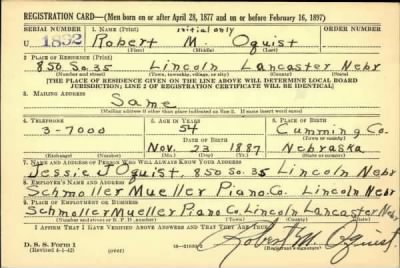 REGISTRATION CARD—(Men born on or after April 28, 1877 and on or before February 16, 1897)
SERIAL NUMBER 1. NAME (Print) initial only ORDER NUMBER
U 1832 Robert M. Oquist
(First) (Middle) (Last)
2. PLACE OF RESIDENCE (Print)
850 So. 35 Lincoln Lancaster Nebr
(Number and street) (Town, township, village, or city) (County) (State)
[THE PLACE OF RESIDENCE GIVEN ON THE LINE ABOVE WILL DETERMINE LOCAL BOARD
JURISDICTION; LINE 2 OF REGISTRATION CERTIFICATE WILL BE IDENTICAL]
3. MAILING ADDRESS
Same
[Mailing address if other than place indicated on line 2. If same insert word same]
4. TELEPHONE 5. AGE IN YEARS 6. PLACE OF BIRTH
3-7000 54 Cumming Co.
DATE OF BIRTH (Town or county)
Nov. 23 1887 Nebraska
(Exchange) (Number) (Mo.) (Day) (Yr.) (State or country)
7. NAME AND ADDRESS OF PERSON WHO WILL ALWAYS KNOW YOUR ADDRESS
Jessie J Oquist, 850 So. 35 Lincoln Nebr
8. EMPLOYER'S NAME AND ADDRESS
Schmoller Mueller Piano Co. Lincoln Nebr
9. PLACE OF EMPLOYMENT OR BUSINESS
Schmoller Mueller Piano Co. Lincoln Lancaster Nebr
(Number and street or R. F. D. number) (Town) (County) (State)
I AFFIRM THAT I HAVE VERIFIED ABOVE ANSWERS AND THAT THEY ARE TRUE.
D. S. S. Form 1
(Revised 4-1-42) (over)
Robert M. Oquist
(Registrant's signature)